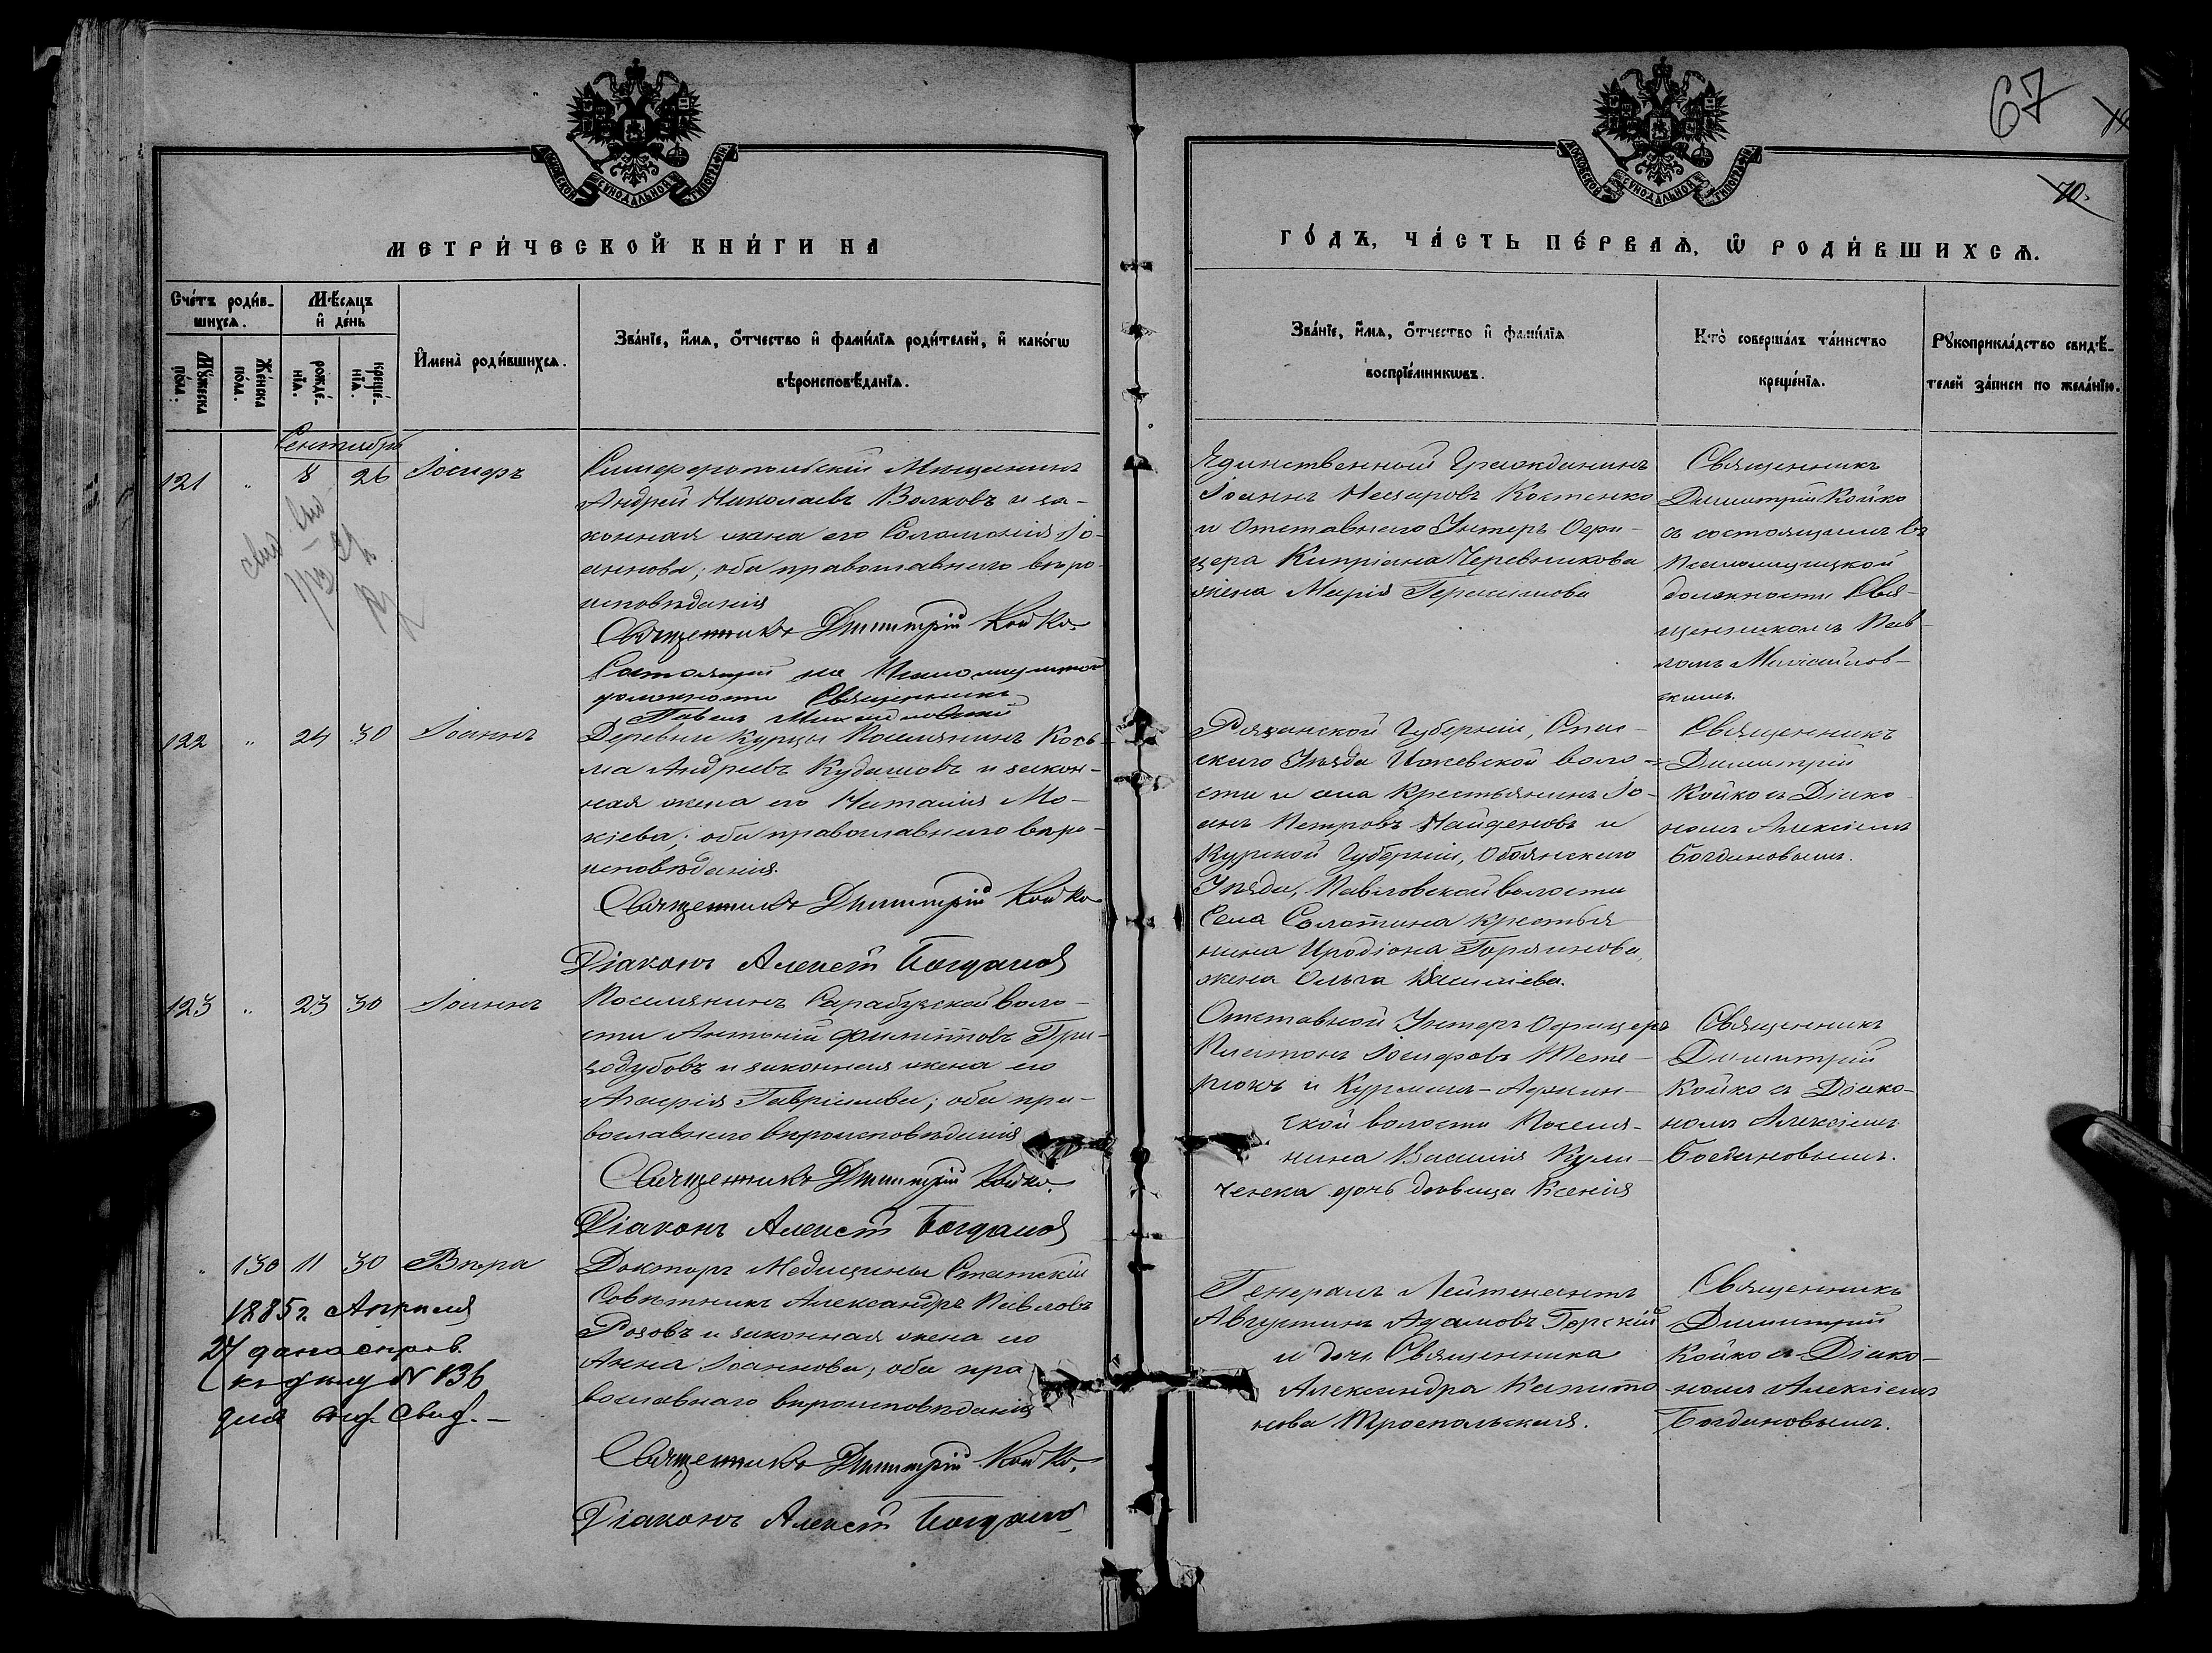 67
70.
МОСКОВСКОЙ СѴНОДАЛЬНОЙ ТИПОГРАФІИ
МОСКОВСКОЙ СѴНОДАЛЬНОЙ ТИПОГРАФІИ
МЕТРИ́ЧЕСКОЙ КНИ́ГИ НА
ГО́ДЪ, ЧА́СТЬ ПЕ́РВАѦ, Ѡ҆ РОДИ́ВШИХСѦ.
Сче́тъ роди́в-
шихсѧ.
Мꙋ́жеска по́ла.
Же́нска по́ла.
Мѣ́сѧцъ
и҆ де́нь
рожде́-
нїѧ.
креще́-
нїѧ.
И҆мена̀ роди́вшихсѧ.
Зва́нїе, и҆́мѧ, ѻ҆́тчество и҆ фами́лїѧ роди́телей, и҆ како́гѡ
вѣроисповѣ́данїѧ.
Зва́нїе, и҆́мѧ, ѻ҆́тчество и҆ фами́лїѧ
воспрїе́мникѡвъ.
Кто̀ соверша́лъ та́инство
креще́нїѧ.
Рꙋкоприкла́дство свидѣ́-
телей за́писи по жела́нїю.
Сентябрь
121 " 8 26 Іосифъ
Симферопольскій Мѣщанинъ
Андрей Николаевъ Волковъ и за-
конная жена его Соломонія Іо-
аннова; оба православнаго вѣро-
исповѣданія
Священникъ Димитрій Койко.
Состоящій на Псаломщицкой
должности Священникъ
Павелъ
Гражданинъ
Іоаннъ Костенко
и Отставнаго Унтеръ Офи-
цера Кипріана Черевикова
жена Марія Герасимова
Священникъ
Димитрій Койко
съ состоящимъ въ
Псаломщицкой
должности Свя-
щенникомъ Пав-
ломъ
скимъ.
122 " 24 30 Іоаннъ
Деревни Курцы Поселянинъ Козь-
ма Андреевъ Кудашовъ и закон-
ная жена его Наталія Мо-
кіева; оба православнаго вѣро-
исповѣданія.
Священникъ Димитрій Койко
Діаконъ Алексѣй Богданов
Рязанской Губерніи, Спас-
скаго Уѣзда Ижевской воло-
сти и села Крестьянинъ Іо-
аннъ Петровъ Найденовъ и
Курской Губерніи, Обоянскаго
Уѣзда, Павловской волости
Села Солотина крестья-
нина Иродіона Горяинова,
жена Ольга Васильева.
Священникъ
Димитрій
Койко съ Діако-
номъ Алексіемъ
Богдановымъ.
123 " 23 30 Іоаннъ
Поселянинъ Сарабузской воло-
сти Антоній Филипповъ Гри-
зодубовъ и законная жена его
Агафія Гавріилова; оба пра-
вославнаго вѣроисповѣданія
Священникъ Димитрій Койко.
Діаконъ Алексѣй Богданов
Отставной Унтеръ Офицеръ
Платонъ Іосифовъ Тете-
рюкъ и Курманъ-Аджин-
ской волости Поселя-
нина Василія Кули-
ченка дочь дѣвица Ксенія
Священникъ
Димитрій
Койко съ Діако-
номъ Алексіемъ
Богдановымъ.
" 130 11 30 Вѣра
1885 г. Апрѣля
27 дана справ.
къ дѣлу № 136
для выд. Свид. —
Докторъ Медицины Статскій
Совѣтникъ Александръ Павловъ
Розовъ и законная жена его
Анна Іоаннова; оба пра-
вославнаго вѣроисповѣданія
Священникъ Димитрій Койко.
Діаконъ Алексѣй Богданов
Генералъ Лейтенантъ
Августинъ Адамовъ Горскій
и дочь Священника
Александра Капито-
нова Тропольская.
Священникъ
Димитрій
Койко съ Діако-
номъ Алексіемъ
Богдановымъ.